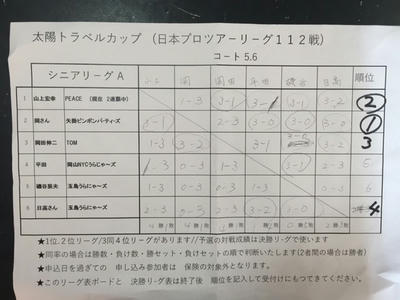 太陽トラベルカップ （日本プロツアーリーグ１１２戦）
コート5.6
シニアリーグ A 山上 岡 岡田 平田 磯谷 日高 順位
1 山上宏幸 PEACE （現在 2連覇中） 1-3 3-1 3-1 3-1 3-2 2
2 岡さん 矢掛ピンポンパーティーズ 3-1 2-3 3-0 3-0 3-0 1
3 岡田伸二 TOM 1-3 3-2 3-1 3-0 3-2 3
4 平田 岡山NYCうらじゃーズ 1-3 0-3 1-3 3-1 2-3 5
5 磯谷辰夫 玉島うらじゃーズ 1-3 0-3 0-3 1-3 0-3 6
6 日高さん 玉島うらじゃーズ 2-3 0-3 2-3 3-2 3-0 4
★1位.2位リーグ/3同4位リーグがあります//予選の対戦成績は決勝リーグで使います
★同率の場合は勝数・負け数・勝セット・負けセットの順で判断いたします（2者間の場合は勝者）
★申込日を過ぎての 申し込み参加者は 保険の対象外となります。
★このリーグ表ボードと 決勝リーグ表は終了後 順位を記入して受付けにもってきてください。